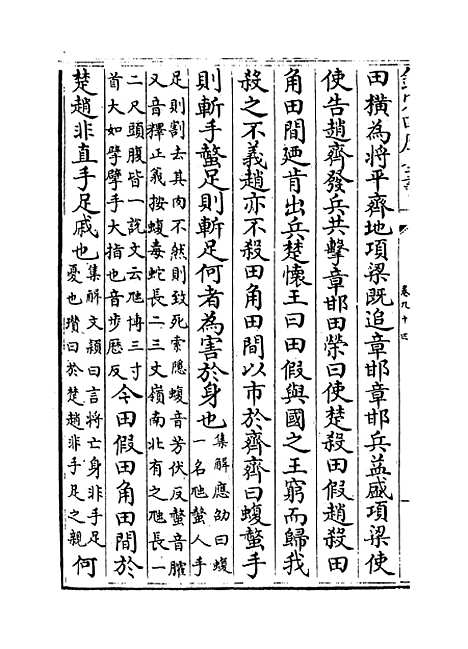 卷九十四
田横為將平齊地項梁既追章邯章邯兵益盛項梁使
使告趙齊發兵共擊章邯田榮曰使楚殺田假趙殺田
角田間廼肯出兵楚懷王曰田假與國之王窮而歸我
殺之不義趙亦不殺田角田間以市於齊齊曰蝮螫手
則斬手螫足則斬足何者為害於身也
集解應劭曰蝮
一名虺螫人手
足則割去其肉不然則致死索隱蝮音芳伏反螫音臛
又音擇正義按蝮毒蛇長二三丈嶺南北有之虺長一
二尺頭腹皆一說文云虺博三寸
首大如擘擘手大指也音步歷反
今田假田角田間於
楚趙非直手足戚也
集解文穎曰言將亡身非手足
憂也瓚曰於楚趙非手足之親
何